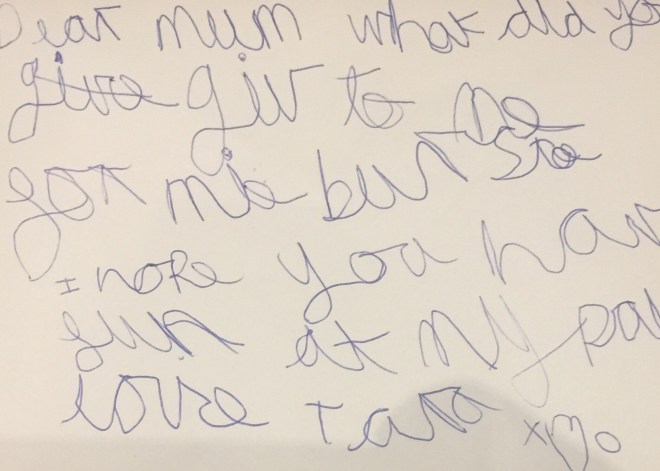 Dear mum what did yo
give giv to me
for mie but
I hope you hav
fun at my pa
love Tara x